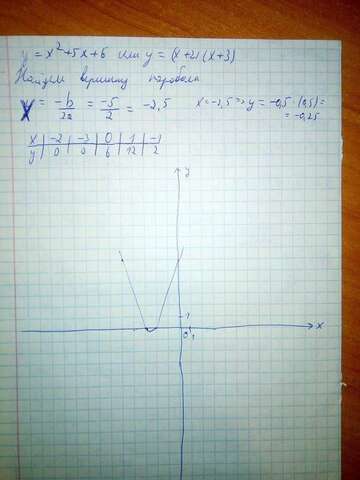 y = x² + 5x + 6 или y = (x+2)(x+3)
Найдем вершину параболы
x = -b/2a = -5/2 = -2,5 x = -2,5 => y = -0,5 · (0,5) =
= -0,25
x | -2 | -3 | 0 | 1 | -1
y | 0 | 0 | 6 | 12 | 2
y
1
x
0 1